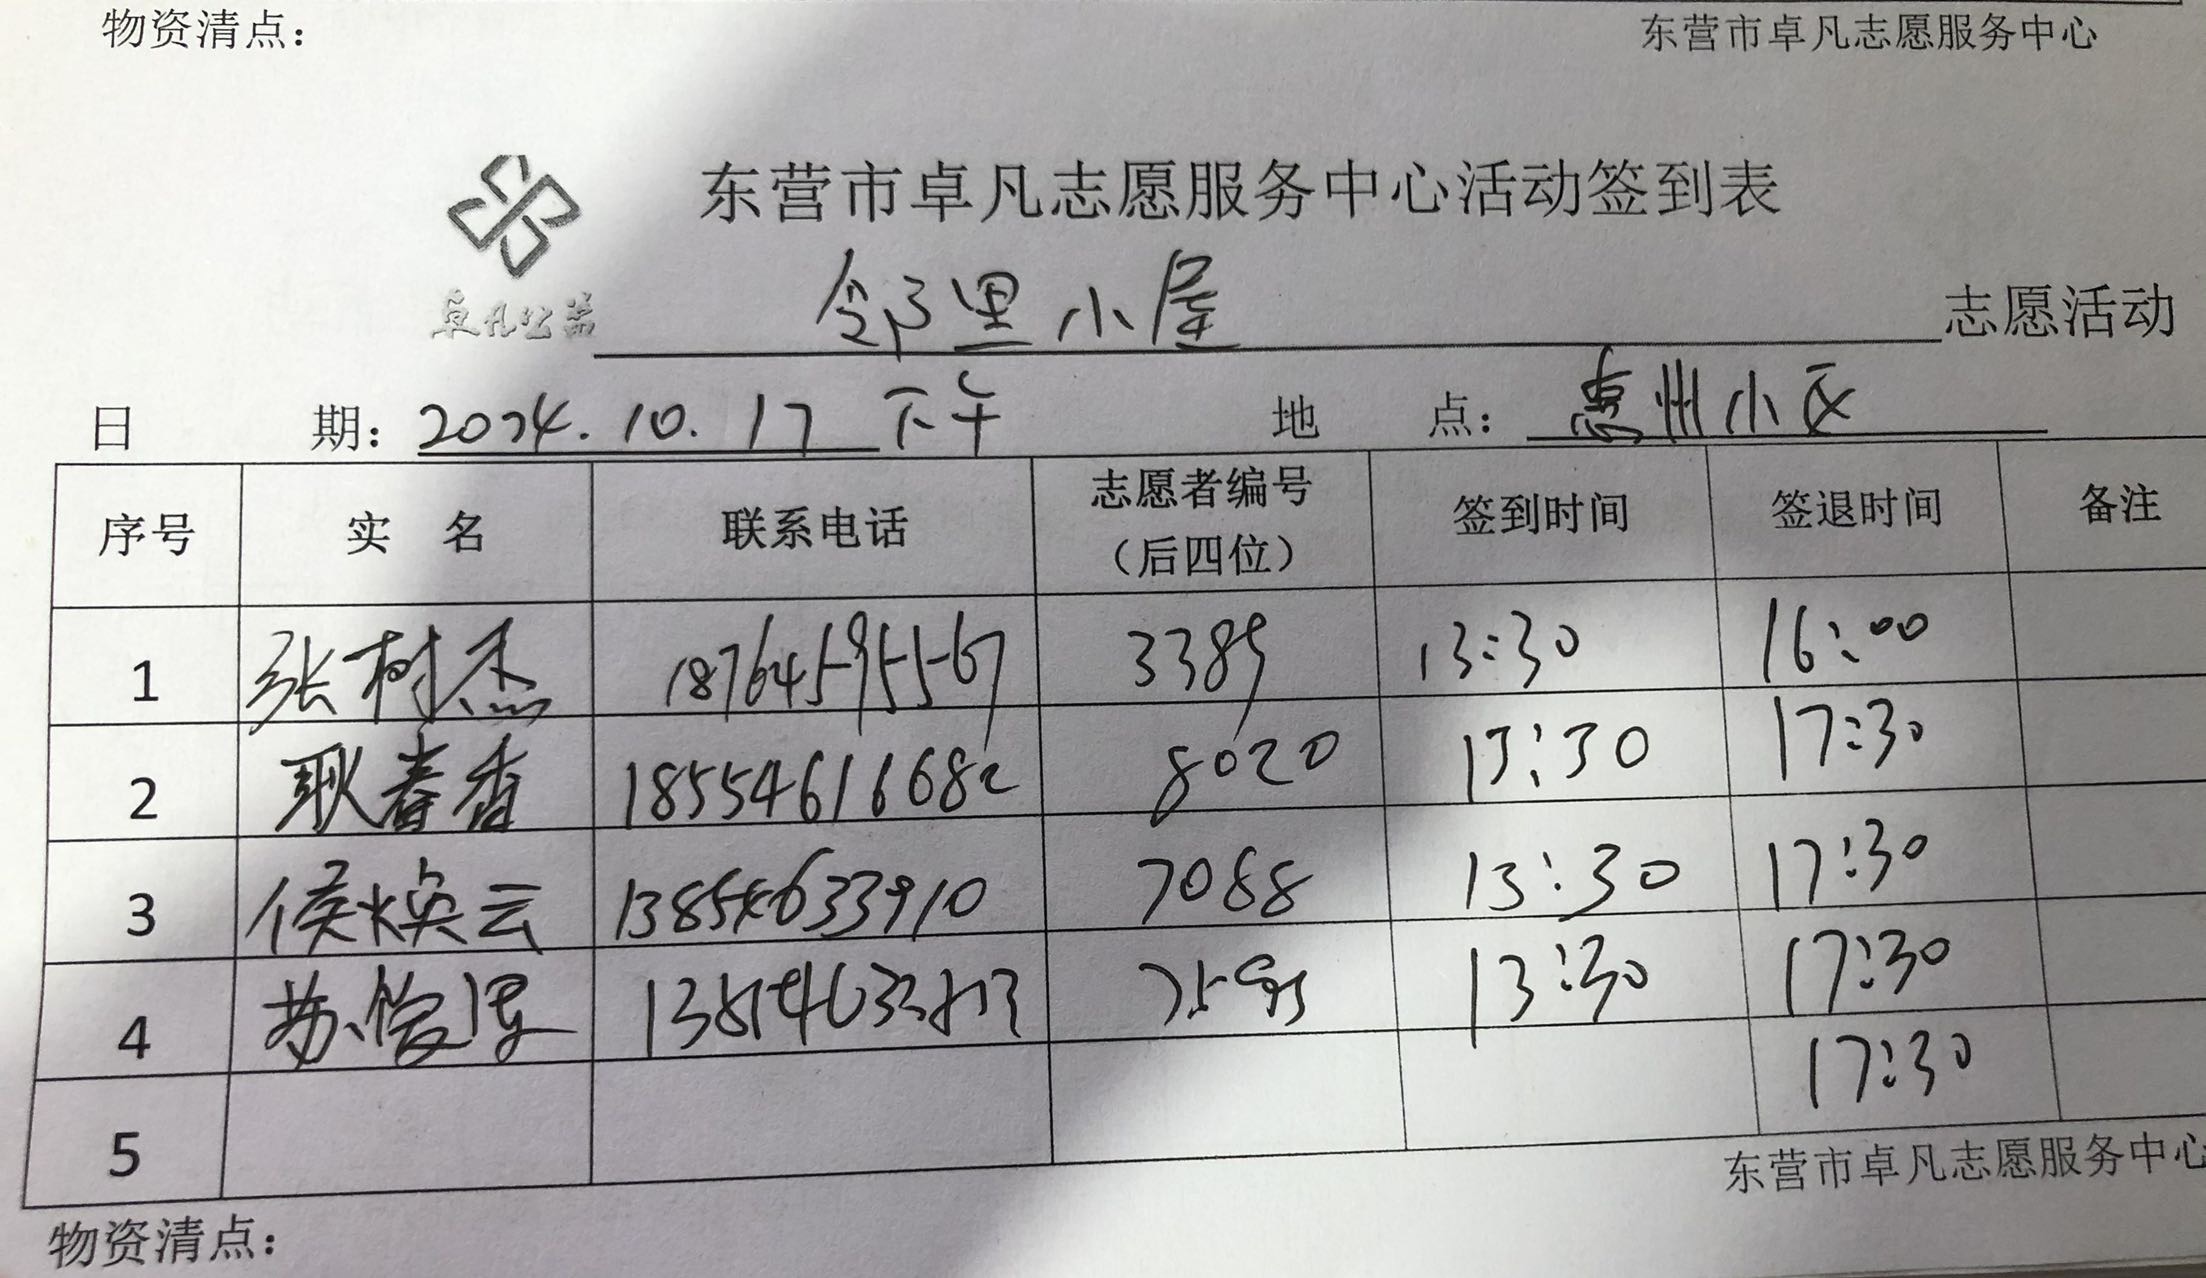 物资清点：
东营市卓凡志愿服务中心
东营市卓凡志愿服务中心活动签到表
卓凡公益
邻里小屋 志愿活动
日 期：2024.10.17下午 地 点：惠州小区
序号 实 名 联系电话 志愿者编号（后四位） 签到时间 签退时间 备注
1 张树杰 18764595567 3389 13:30 16:00
2 耿春香 18554616682 8020 13:30 17:30
3 侯焕云 13854633910 7088 13:30 17:30
4 苏 13:30 17:30
5 17:30
东营市卓凡志愿服务中心
物资清点：